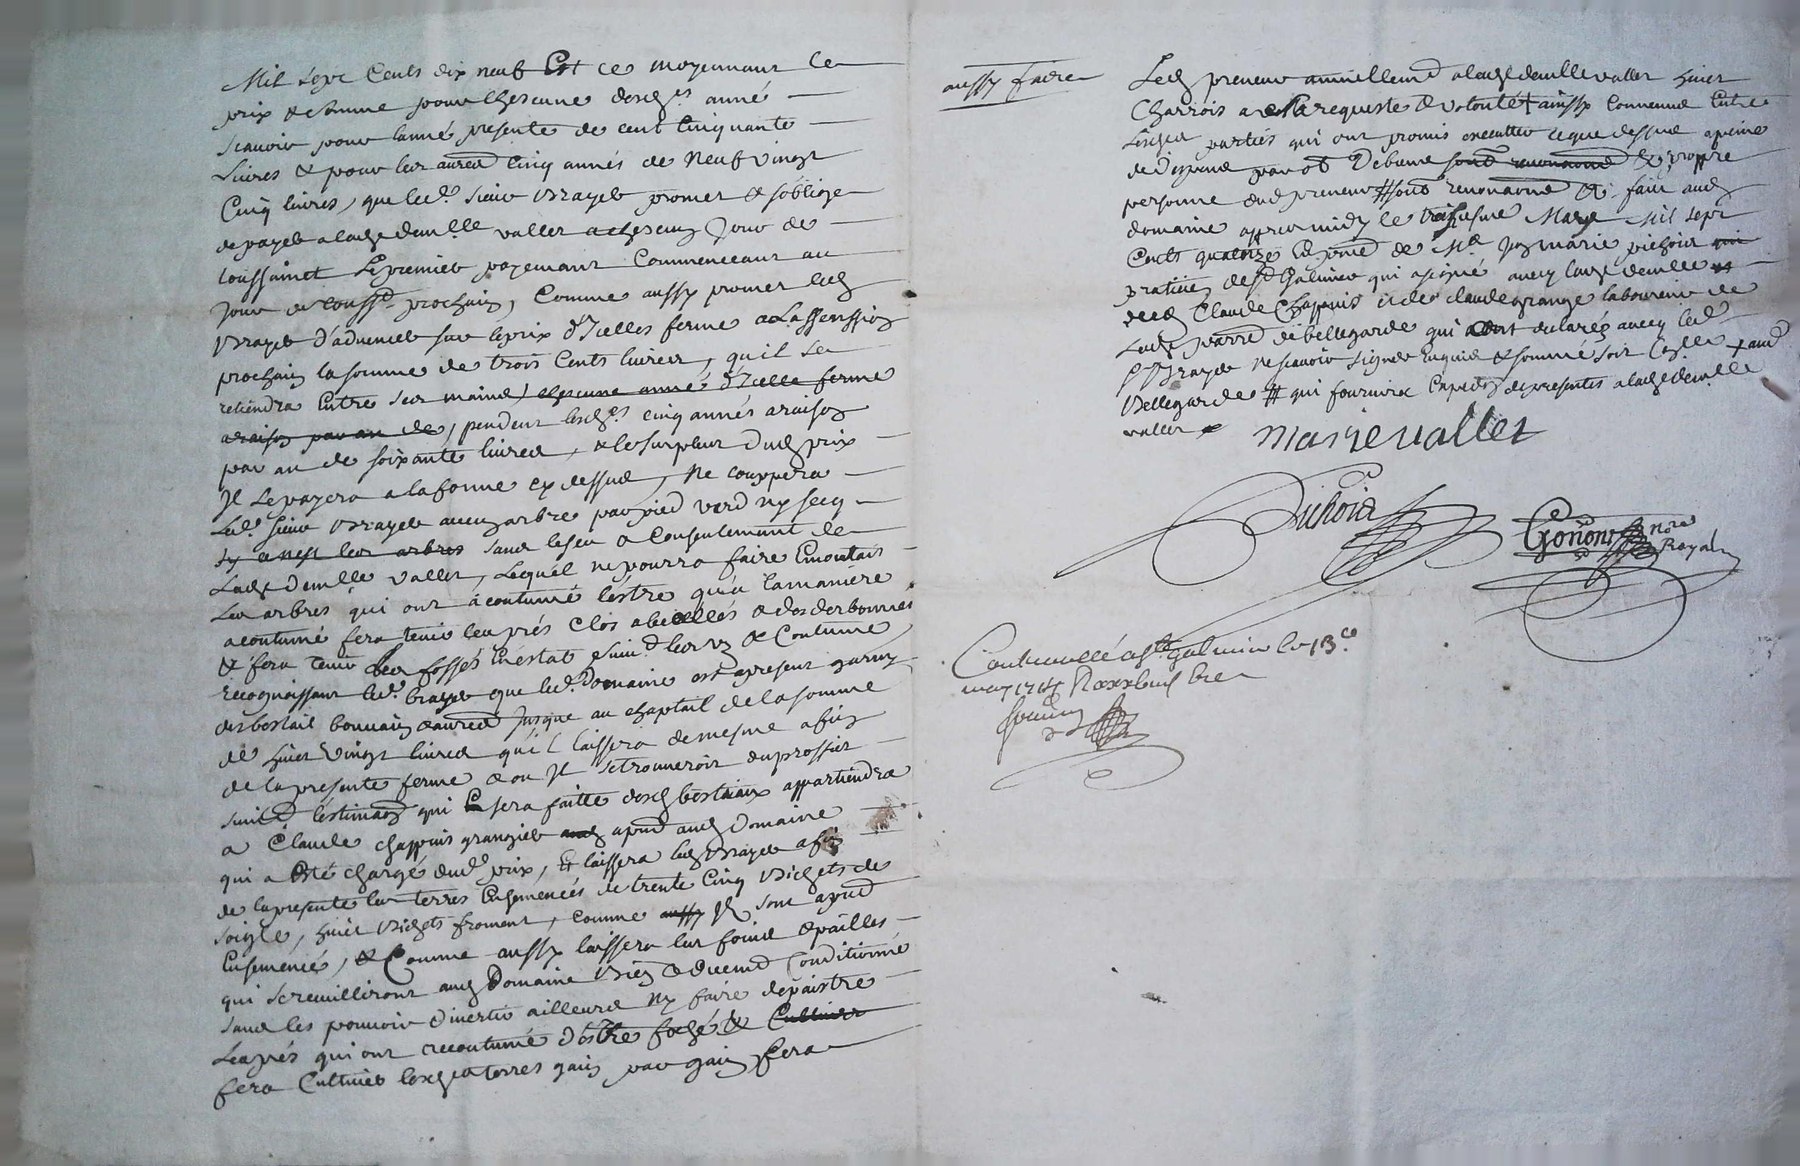 Mil sept Cents dix neuf Est ce moyennant le
prix & somme pour chescune desd.es anné
scavoir pour lanné presente de cent Cinquante
livres & pour les autres Cinq annés de Neuf vingt
Cinq livres, que led.t sieur Brayet promet & s'oblige
de payer a lad.e dem.lle vallet a chescun Jour de
toussainct Le premier payemant Commenceant au
Jour de touss.t prochain, Comme aussy promet led.
Brayet d'advencer sur le prix d'Icelles ferme a Lassenssion
prochain la somme de trois Cents livres, qu'il se
retiendra Entre ses mains, chescune anné d'Icelle ferme
a raison par an de, pendent lesd.es cinq annés a raison
par an de soixante livres, & le surplus dud. prix
Il Le payera a la forme cy dessus, Ne couppera
Led.t sieur Brayet aucung arbre par pied verd ny secq
sy a nest les arbres sans le sceu & Consentement de
Lad.e dem.lle vallet, Lequel ne pourra faire Emontais
Les arbres qui ont acoutumé lestre qu'a la maniere
acoutumé fera tenir les prés Clos abiellés & des derbonnés
& fera tenir les fossés En estat suiv.t leur us & Coutume
recognoissant led.t brayet que led.t Domaine est apresent garny
des bestail bouvain & autres Jusque au chaptail de la somme
de huit Vingt livres qu'il laissera de mesme a fin
de la presente ferme & ou Il se trouveroit du proffict
suiv.t l'estima.on qui En sera faitte desd. bestiaux appartiendra
a Claude chappuis grangier aud. aprnt aud. Domaine
qui a Esté chargé dud.t prix, Et laissera led. Brayet a fin
de la presente les terres Ensemencés de trente Cinq Bichets de
soigle, huict Bichets froment, Comme aussy Il sont aprnt
Ensemencés, & Comme aussy laissera les foins & pailles
qui se reuilliront aud. Domaine Bien & deuemt Conditionné
sans les pouvoir divertir ailleurs Ny faire depaistre
Les prés qui ont accoutumé d'estre fochés & Cultiver
fera Cultiver lesd.es terres gain par gain fera
aussy faire
Led. preneur annuellemt a lad.e demlle vallet huict
Charrois a sa requiste & volonté + ainssy Convenus Entre
Lesd.es partiés qui ont promis executter ce que dessus a peine
de despens par ob de biens soub renonaons & propre
personne dud. preneur # soub renonaons & fait aud.
domaine appres midy le troisiesme Mars Mil sept
Cents quatorze En pnce de M.e Jean marie pichoid
praticien de St Galmier qui a signé avecq lad.e demlle
Claude Chappuis et de claude grange laboureur de
Lad. parre de bellegarde qui ont declarés avecq led.t
s.r Brayet Ne scavoir signer Enquis & sommé soit
Bellegarde # qui fournira Expedon des presentes a lad.e demlle
vallet
marie vallet
Pichoid
Gonon no.re Royal
Controllé a St galmier le 13.e
mars 1714